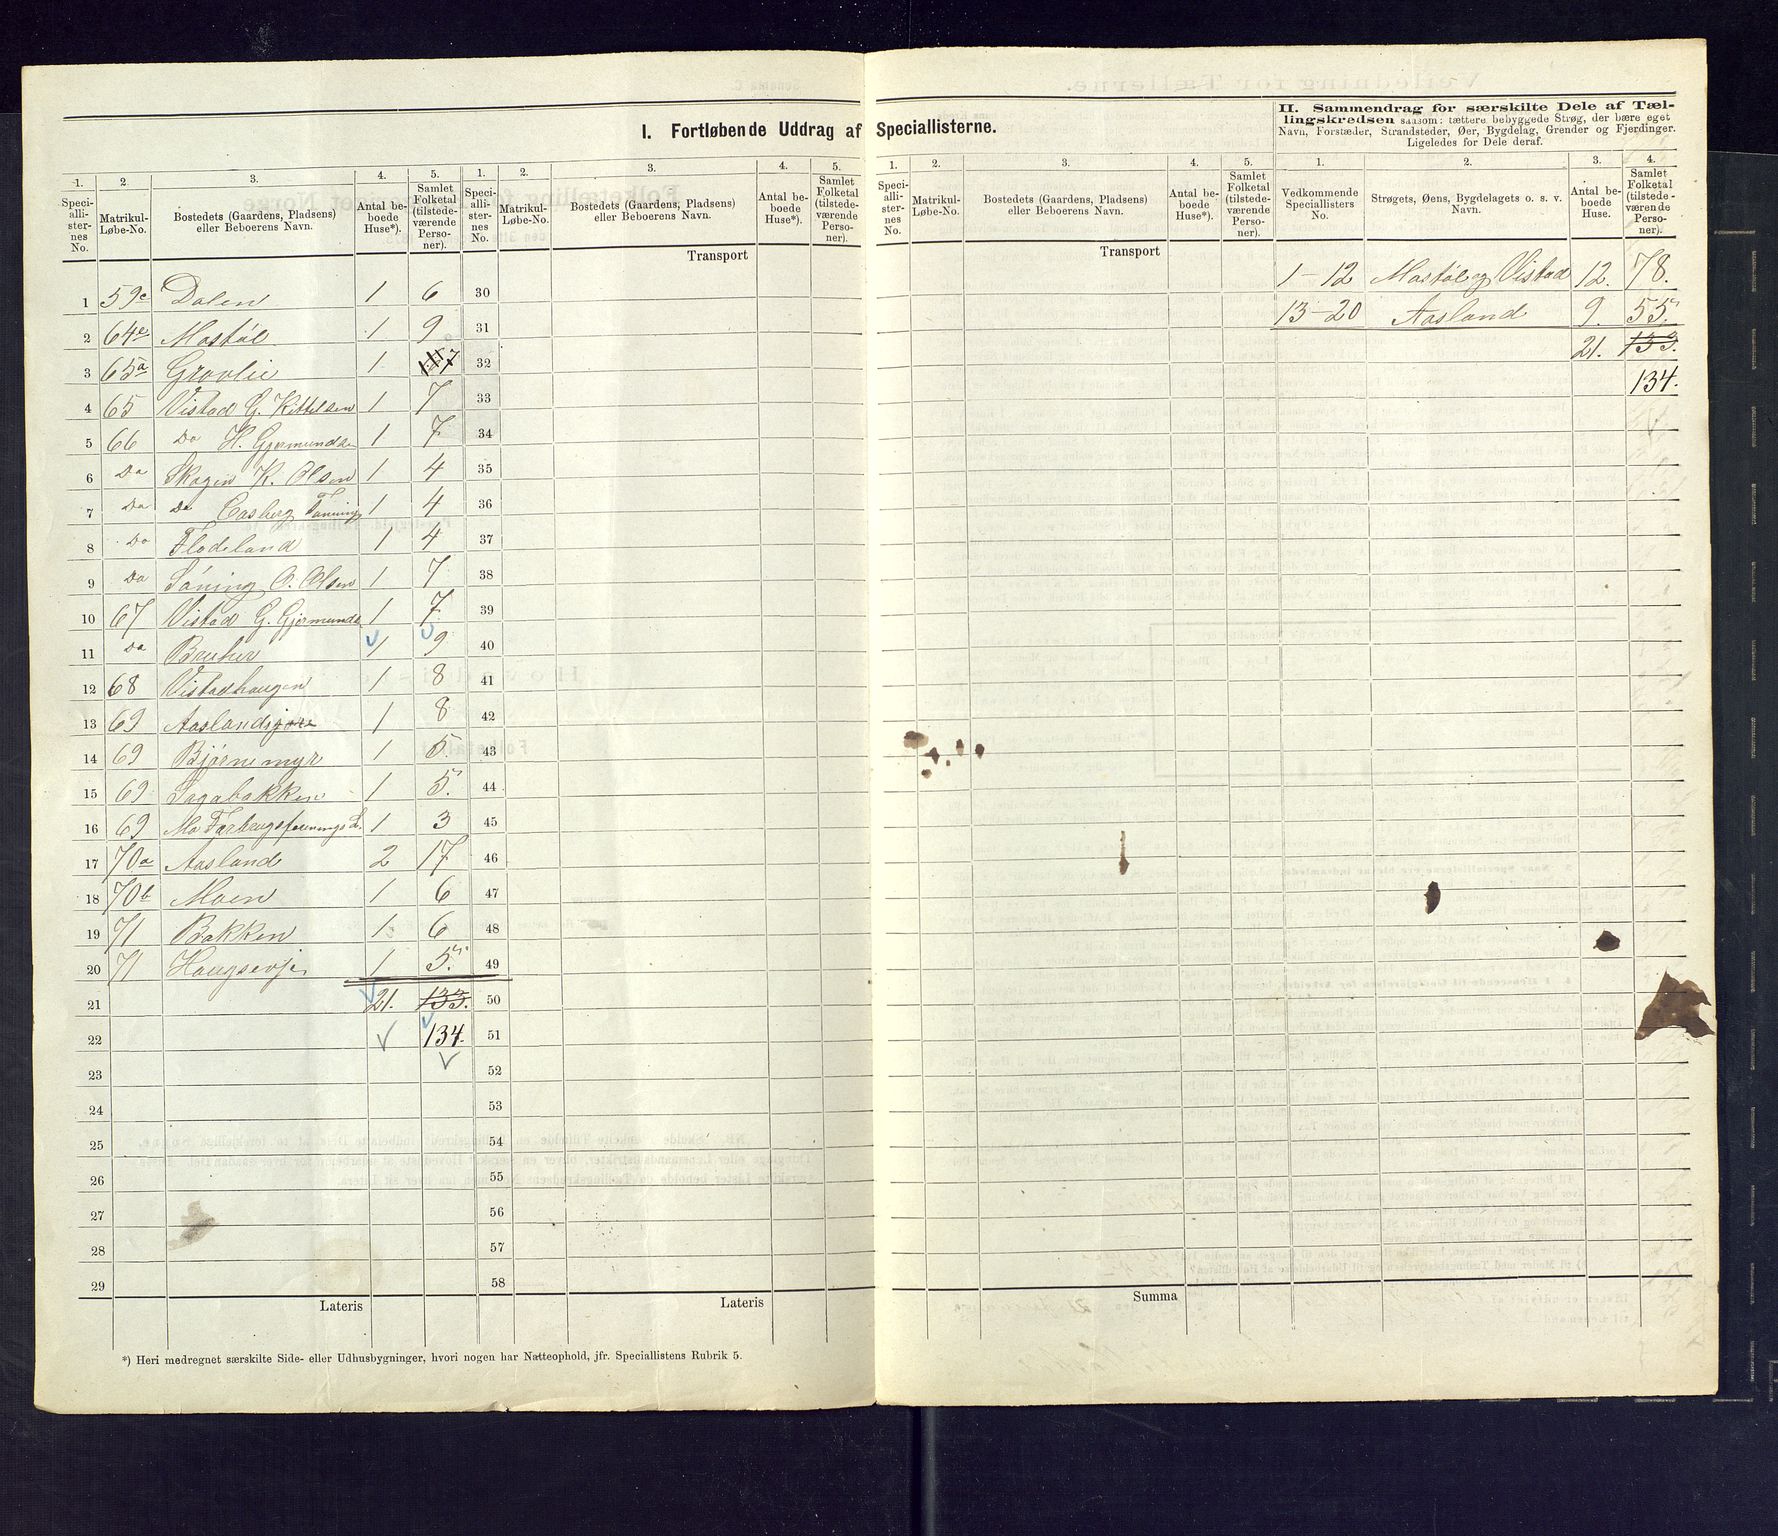 I. Fortløbende Uddrag af Speciallisterne.
II. Sammendrag for særskilte Dele af Tællingskredsen saasom: tættere bebyggede Strøg, der bære eget Navn, Forstæder, Strandsteder, Øer, Bygdelag, Grender og Fjerdinger. Ligeledes for Dele deraf.
1. 2. 3. 4. 5. 1. 2. 3. 4. 5. 1. 2. 3. 4. 5. 1. 2. 3. 4.
Speciallisternes No. Matrikul-Løbe-No. Bostedets (Gaardens, Pladsens) eller Beboerens Navn. Antal beboede Huse*). Samlet Folketal (tilstedeværende Personer).
Speciallisternes No. Matrikul-Løbe-No. Bostedets (Gaardens, Pladsens) eller Beboerens Navn. Antal beboede Huse*). Samlet Folketal (tilstedeværende Personer).
Speciallisternes No. Matrikul-Løbe-No. Bostedets (Gaardens, Pladsens) eller Beboerens Navn. Antal beboede Huse*). Samlet Folketal (tilstedeværende Personer).
Vedkommende Speciallisters No. Strøgets, Øens, Bygdelagets o. s. v. Navn. Antal beboede Huse. Samlet Folketal (tilstedeværende Personer).
Transport
Transport
1 59c Dalen 1 6 30
2 64e Mostøl 1 9 31
3 65a Grovlie 1 7 32
4 65 Vistad G. Kittelsen 1 7 33
5 66 Do H. Gjermundsen 1 7 34
6 Do Skogen K. Olsen 1 4 35
7 Do Do 1 4 36
8 Do Flodeland 1 4 37
9 Do O. Olsen 1 7 38
10 67 Vistad G. Gjermunds 1 7 39
11 Do 1 9 40
12 68 Vistadhaugen 1 8 41
13 69 Aaslands 1 8 42
14 69 Bjørnemyr 1 5. 43
15 69 Sagabakken 1 5. 44
16 69 1 3 45
17 70a Aasland 2 17 46
18 70b Moen 1 6 47
19 71 Bakken 1 6 48
20 71 Haugsevje 1 5. 49
21 21. 133. 50
22 134. 51
23 52
24 53
25 54
26 55
27 56
28 57
29 58
Lateris
Lateris
Summa
1-12 Mostøl og Vistad 12. 78.
13-20 Aasland 9. 55.
21. 133.
134.
*) Heri medregnet særskilte Side- eller Udhusbygninger, hvori nogen har Natteophold, jfr. Speciallistens Rubrik 5.